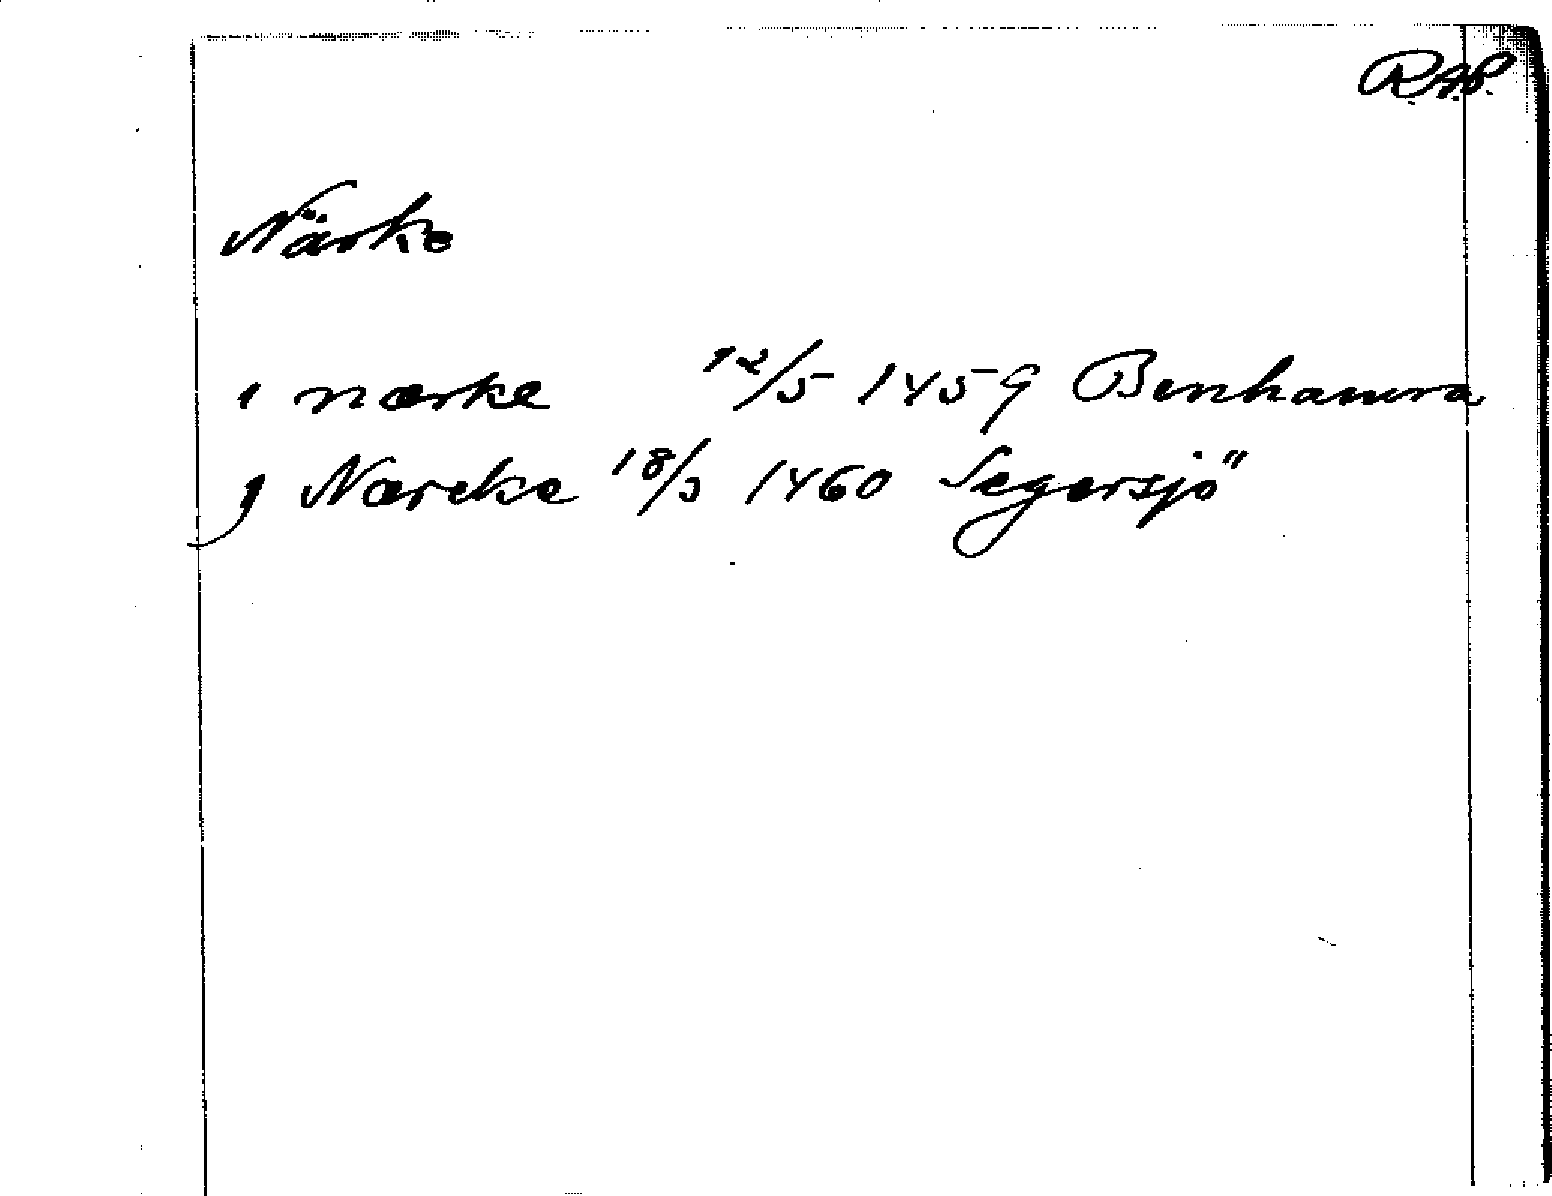 R.A.P.
Närke
i nærke 12/5 1459 Benhamra
j Nærcke 18/3 1460 Segersjö